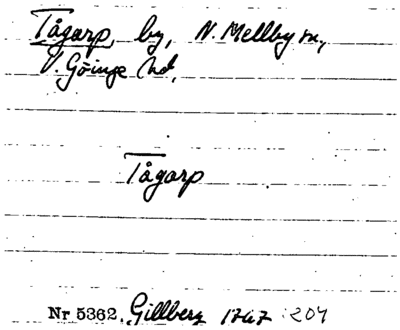 Tågarp by, N. Mellby sn,
V. Göinge hd,
Tågarp
Nr 5362. Gillberg 1767 :204